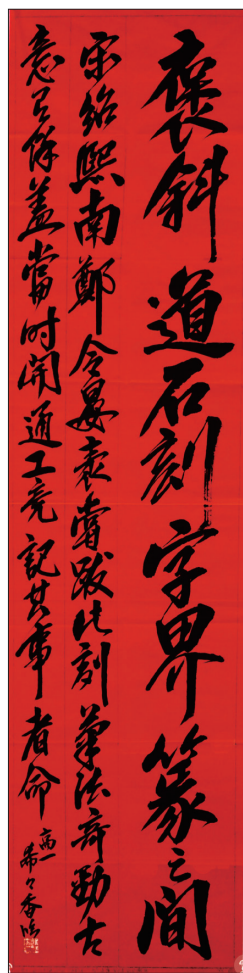 褒斜道石刻字界篆之間
宋紹熙南鄭令晏袤嘗跋此刻筆法奇勁古
意有餘盖當时開通工竟記其事者命
高一